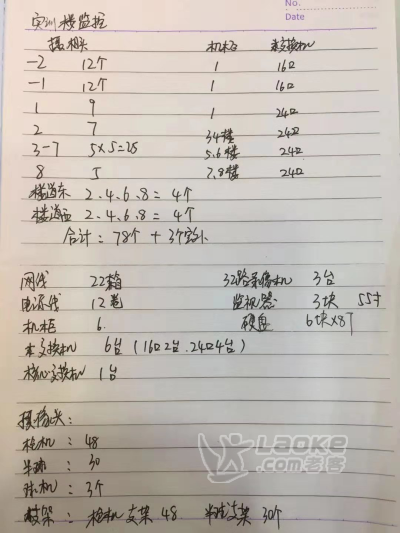 No.
Date
实训楼监控
摄相头 机柜 本交换机
-2 12个 1 16口
-1 12个 1 16口
1 9 1 24口
2 7
3-7 5×5=25 34楼 24口
5.6楼 24口
8 5 7.8楼 24口
楼道东 2.4.6.8= 4个
楼道西 2.4.6.8= 4个
合计: 78个 + 3个室外
网线 22箱 32路录像机 3台
电源线 12卷 监视器 3块 55寸
机柜 6. 硬盘 6块×8T
本交换机 6台 (16口2台.24口4台)
核心交换机 1台
摄像头:
枪机: 48
半球: 30
球机: 3个
支架: 枪机支架 48 半球支架 30个
LAOKE
.com 老客